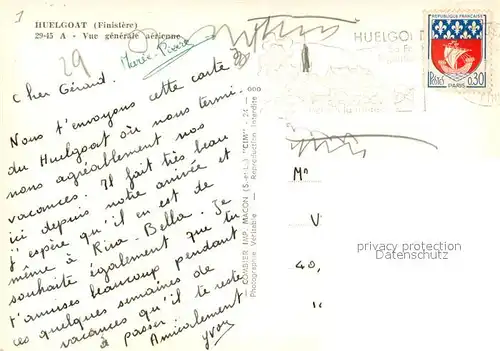 HUELGOAT (Finistère)
29-45 A - Vue générale aérienne
29
Marie-Pierre
Cher Gérard.
Nous t'envoyons cette carte
du Huelgoat où nous termi-
nons agréablement nos
vacances. Il fait très beau
ici depuis notre arrivée et
j'espère qu'il en est de
même à Riva-Bella. Je
souhaite également que tu
t'amuses beaucoup pendant
ces quelques semaines de
vacances qu'il te reste
à passer. Amicalement
Yvon
COMBIER IMP. MACON (S.-et-L.) "CIM"
Photographie Véritable - Reproduction interdite
HUELGO
REPUBLIQUE FRANÇAISE
POSTES
0,30
PARIS
Mr
V
40,
privacy protection